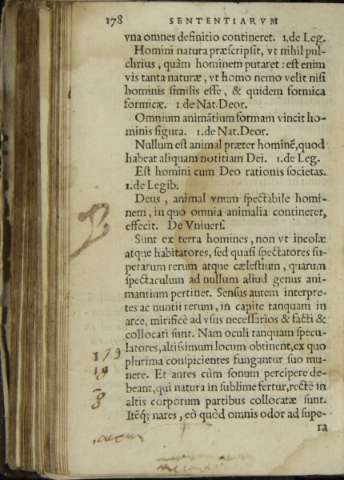 178 SENTENTIARVM
vna omnes definitio contineret. 1.de Leg.
Homini natura præscripsit, vt nihil pul-
chrius, quàm hominem putaret: est enim
vis tanta naturæ, vt homo nemo velit nisi
hominis similis esse, & quidem formica
formicæ. 1.de Nat.Deor.
Omnium animãtium formam vincit ho-
minis figura. 1.de Nat.Deor.
Nullum est animal præter hominẽ, quod
habeat aliquam notitiam Dei. 1.de Leg.
Est homini cum Deo rationis societas.
1.de Legib.
Deus, animal vnum spectabile homi-
nem, in quo omnia animalia contineret,
effecit. De Vniuers.
Sunt ex terra homines, non vt incolæ
atque habitatores, sed quasi spectatores su-
perarum rerum atque cælestium, quarum
spectaculum ad nullum aliud genus ani-
mantium pertinet. Sensus autem interpre-
tes ac nuntii rerum, in capite tanquam in
arce, mirificè ad vsus necessarios & facti &
collocati sunt. Nam oculi tanquam specu-
latores, altissimum locum obtinent, ex quo
plurima conspicientes fungantur suo mu-
nere. Et aures cùm sonum percipere de-
beant, qui natura in sublime fertur, rectè in
altis corporum partibus collocatæ sunt.
Itẽq; nares, eò quòd omnis odor ad supe-
ra